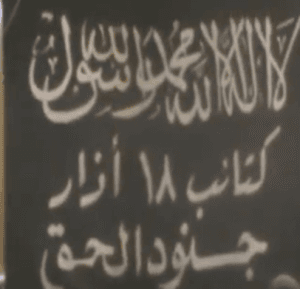 لا إله إلا الله محمد رسول الله
كتائب ١٨ أذار
جنود الحق